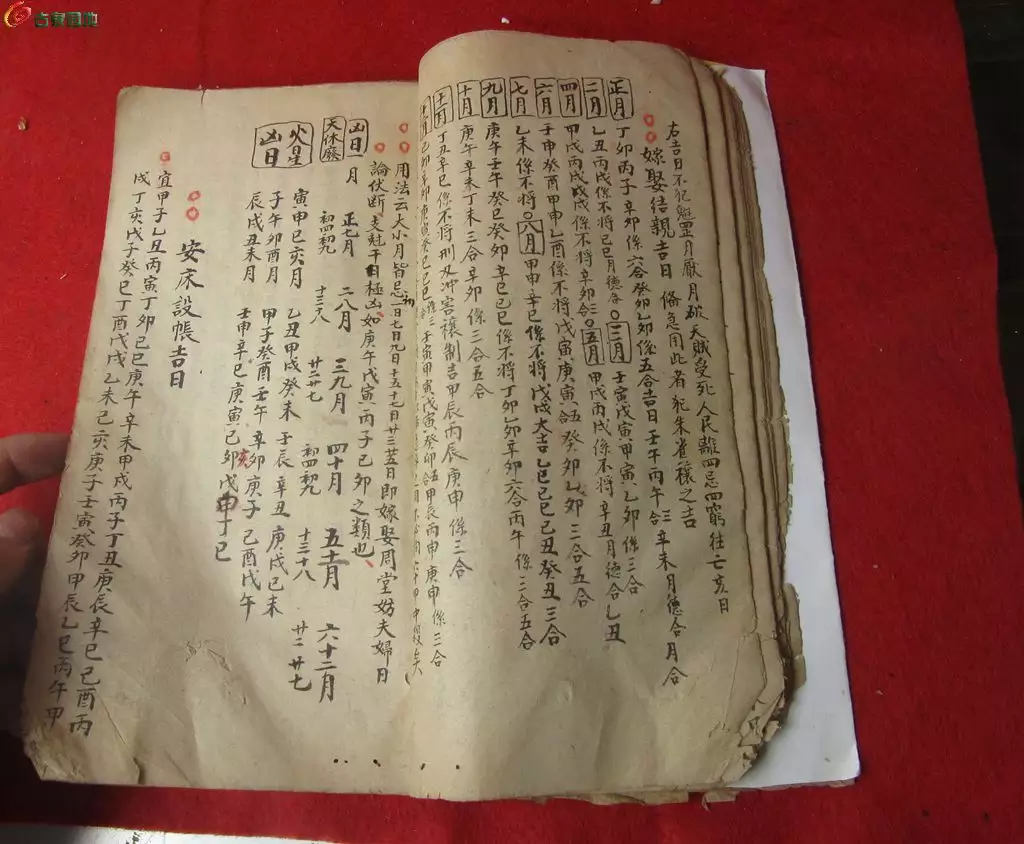 右吉日不犯魁罡月厭月破天賊受死人民離四忌四窮往亡亥日
嫁娶結親吉日 俻急用此者 犯朱雀禳之吉
正月 丁卯丙子辛卯係六合癸卯乙卯係五合吉日壬午丙午三合辛未月德合月合
二月 乙丑丙戌係不将己巳月德合○三月 壬寅戊寅甲寅乙卯係三合
四月 甲戌丙戌戊戌係不将辛卯合○五月 甲戌丙戌係不将辛丑月德合乙丑
六月 壬申癸酉甲申乙酉係不将戊寅庚寅五合癸卯乙卯三合五合
七月 乙未係不将○八月 甲申辛巳係不将戊戌大吉乙巳己巳己丑癸丑三合
九月 庚午壬午癸巳癸卯辛巳己巳係不将丁卯乙卯辛卯六合丙午係三合五合
十月 庚午辛未丁未三合辛卯係三合五合
十一月 丁丑辛巳係不将刑及冲害禳制吉甲辰丙辰庚申係三合
用法云大小月皆忌初一日七日九日十五十七日廿三廿五日即嫁娶周堂妨夫婦日
論伏断支尅干日極凶如庚午戊寅丙子己卯之類也
凶日一月
天休廢 正七月 二八月 三九月 四十月 五十一月 六十二月
初四初九 十三十八 廿二廿七 初四初九 十三十八 廿二廿七
火星凶日 寅申巳亥月 乙丑甲戌癸未壬辰辛丑庚戌己未
子午卯酉月 甲子癸酉壬午辛卯庚子己酉戊午
辰戌丑未月 壬申辛巳庚寅己亥戊申丁巳
安床設帳吉日
宜甲子乙丑丙寅丁卯己巳庚午辛未甲戌丙子丁丑庚辰辛巳己酉丙
戌丁亥戊子癸巳丁酉戊戌乙未己亥庚子壬寅癸卯甲辰乙巳丙午甲
古家园地